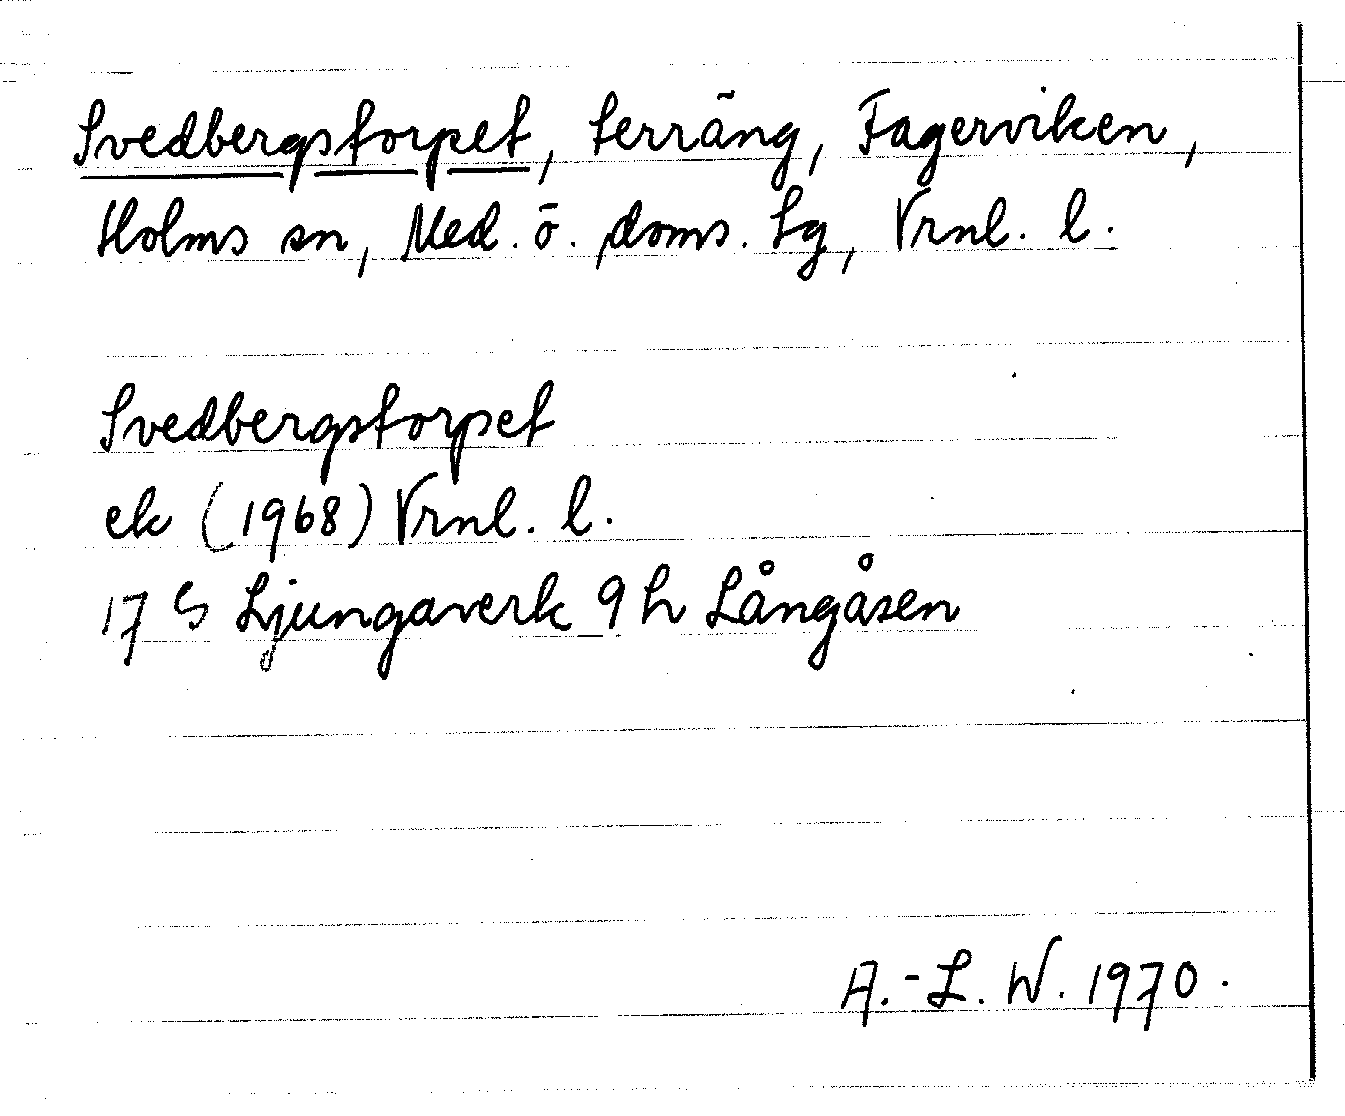 Svedbergstorpet, terräng, Fagerviken,
Holms sn, Med. ö. doms. tg, Vrnl. l.
Svedbergstorpet
ek (1968) Vrnl. l.
17 G Ljungaverk 9 h Långåsen
A.-L. W. 1970.